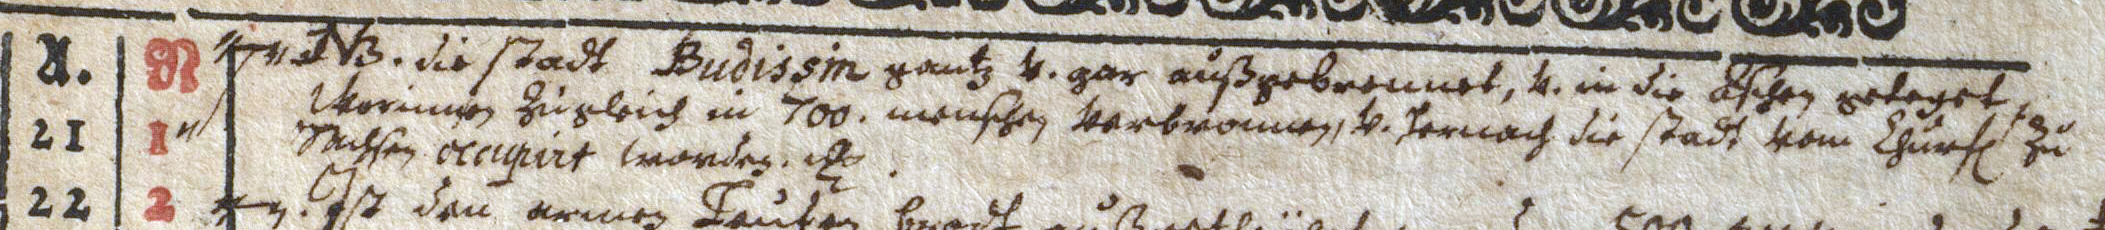 A. N NB. die stadt Budissin gantz v. gar außgebrennet, v. in die Aschen geleget,
worinnen zugleich in 700. menschen verbronnen, v. hernach die stadt vom Churf. zu
21 1 Sachsen occupirt worden.
22 2 Ist den armen Leuten brodt 500